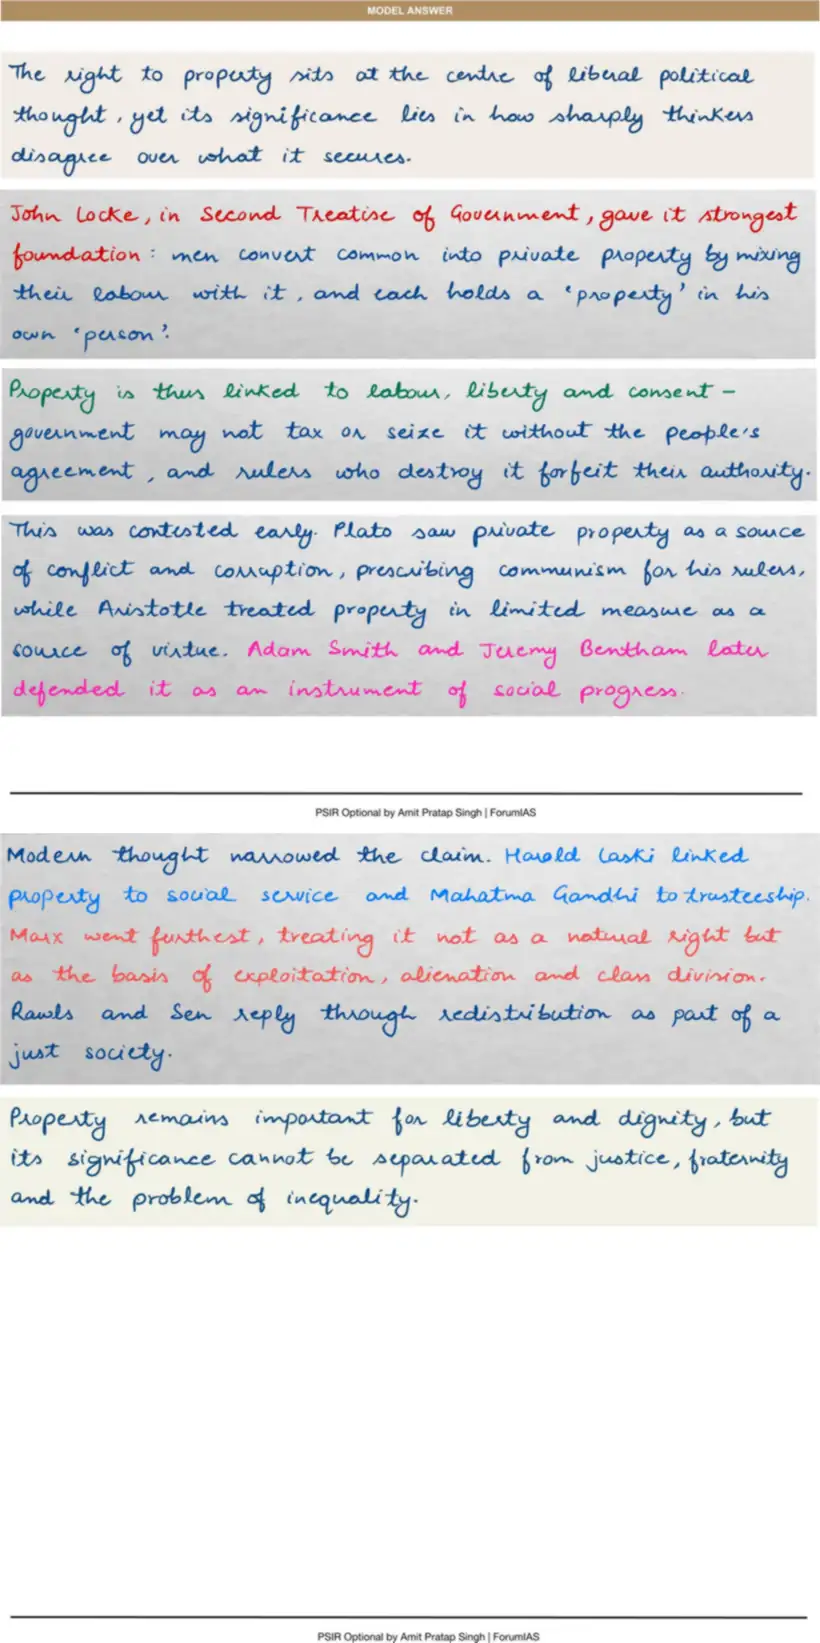 MODEL ANSWER
The right to property sits at the centre of liberal political
thought, yet its significance lies in how sharply thinkers
disagree over what it secures.
John Locke, in Second Treatise of Government, gave it strongest
foundation: men convert common into private property by mixing
their labour with it, and each holds a 'property' in his
own 'person'.
Property is thus linked to labour, liberty and consent –
government may not tax or seize it without the people's
agreement, and rulers who destroy it forfeit their authority.
This was contested early. Plato saw private property as a source
of conflict and corruption, prescribing communism for his rulers,
while Aristotle treated property in limited measure as a
source of virtue. Adam Smith and Jeremy Bentham later
defended it as an instrument of social progress.
PSIR Optional by Amit Pratap Singh | ForumIAS
Modern thought narrowed the claim. Harold Laski linked
property to social service and Mahatma Gandhi to trusteeship.
Marx went furthest, treating it not as a natural right but
as the basis of exploitation, alienation and class division.
Rawls and Sen reply through redistribution as part of a
just society.
Property remains important for liberty and dignity, but
its significance cannot be separated from justice, fraternity
and the problem of inequality.
PSIR Optional by Amit Pratap Singh | ForumIAS